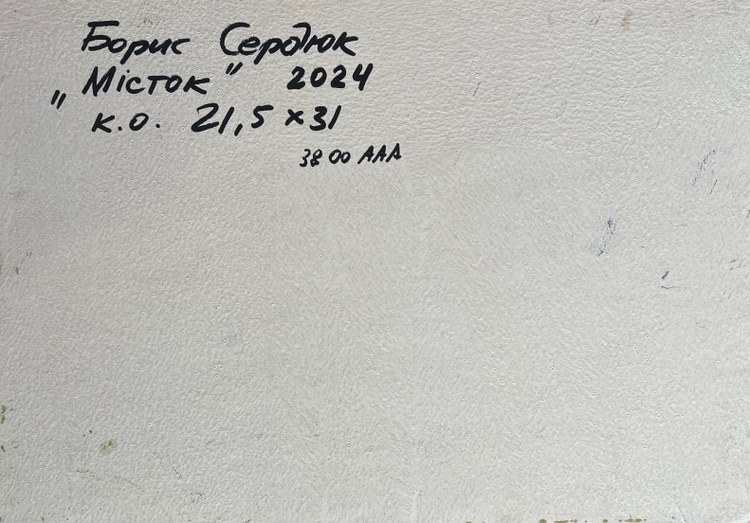 Борис Сердюк
„Місток" 2024
к.о. 21,5 × 31
3800 ААА